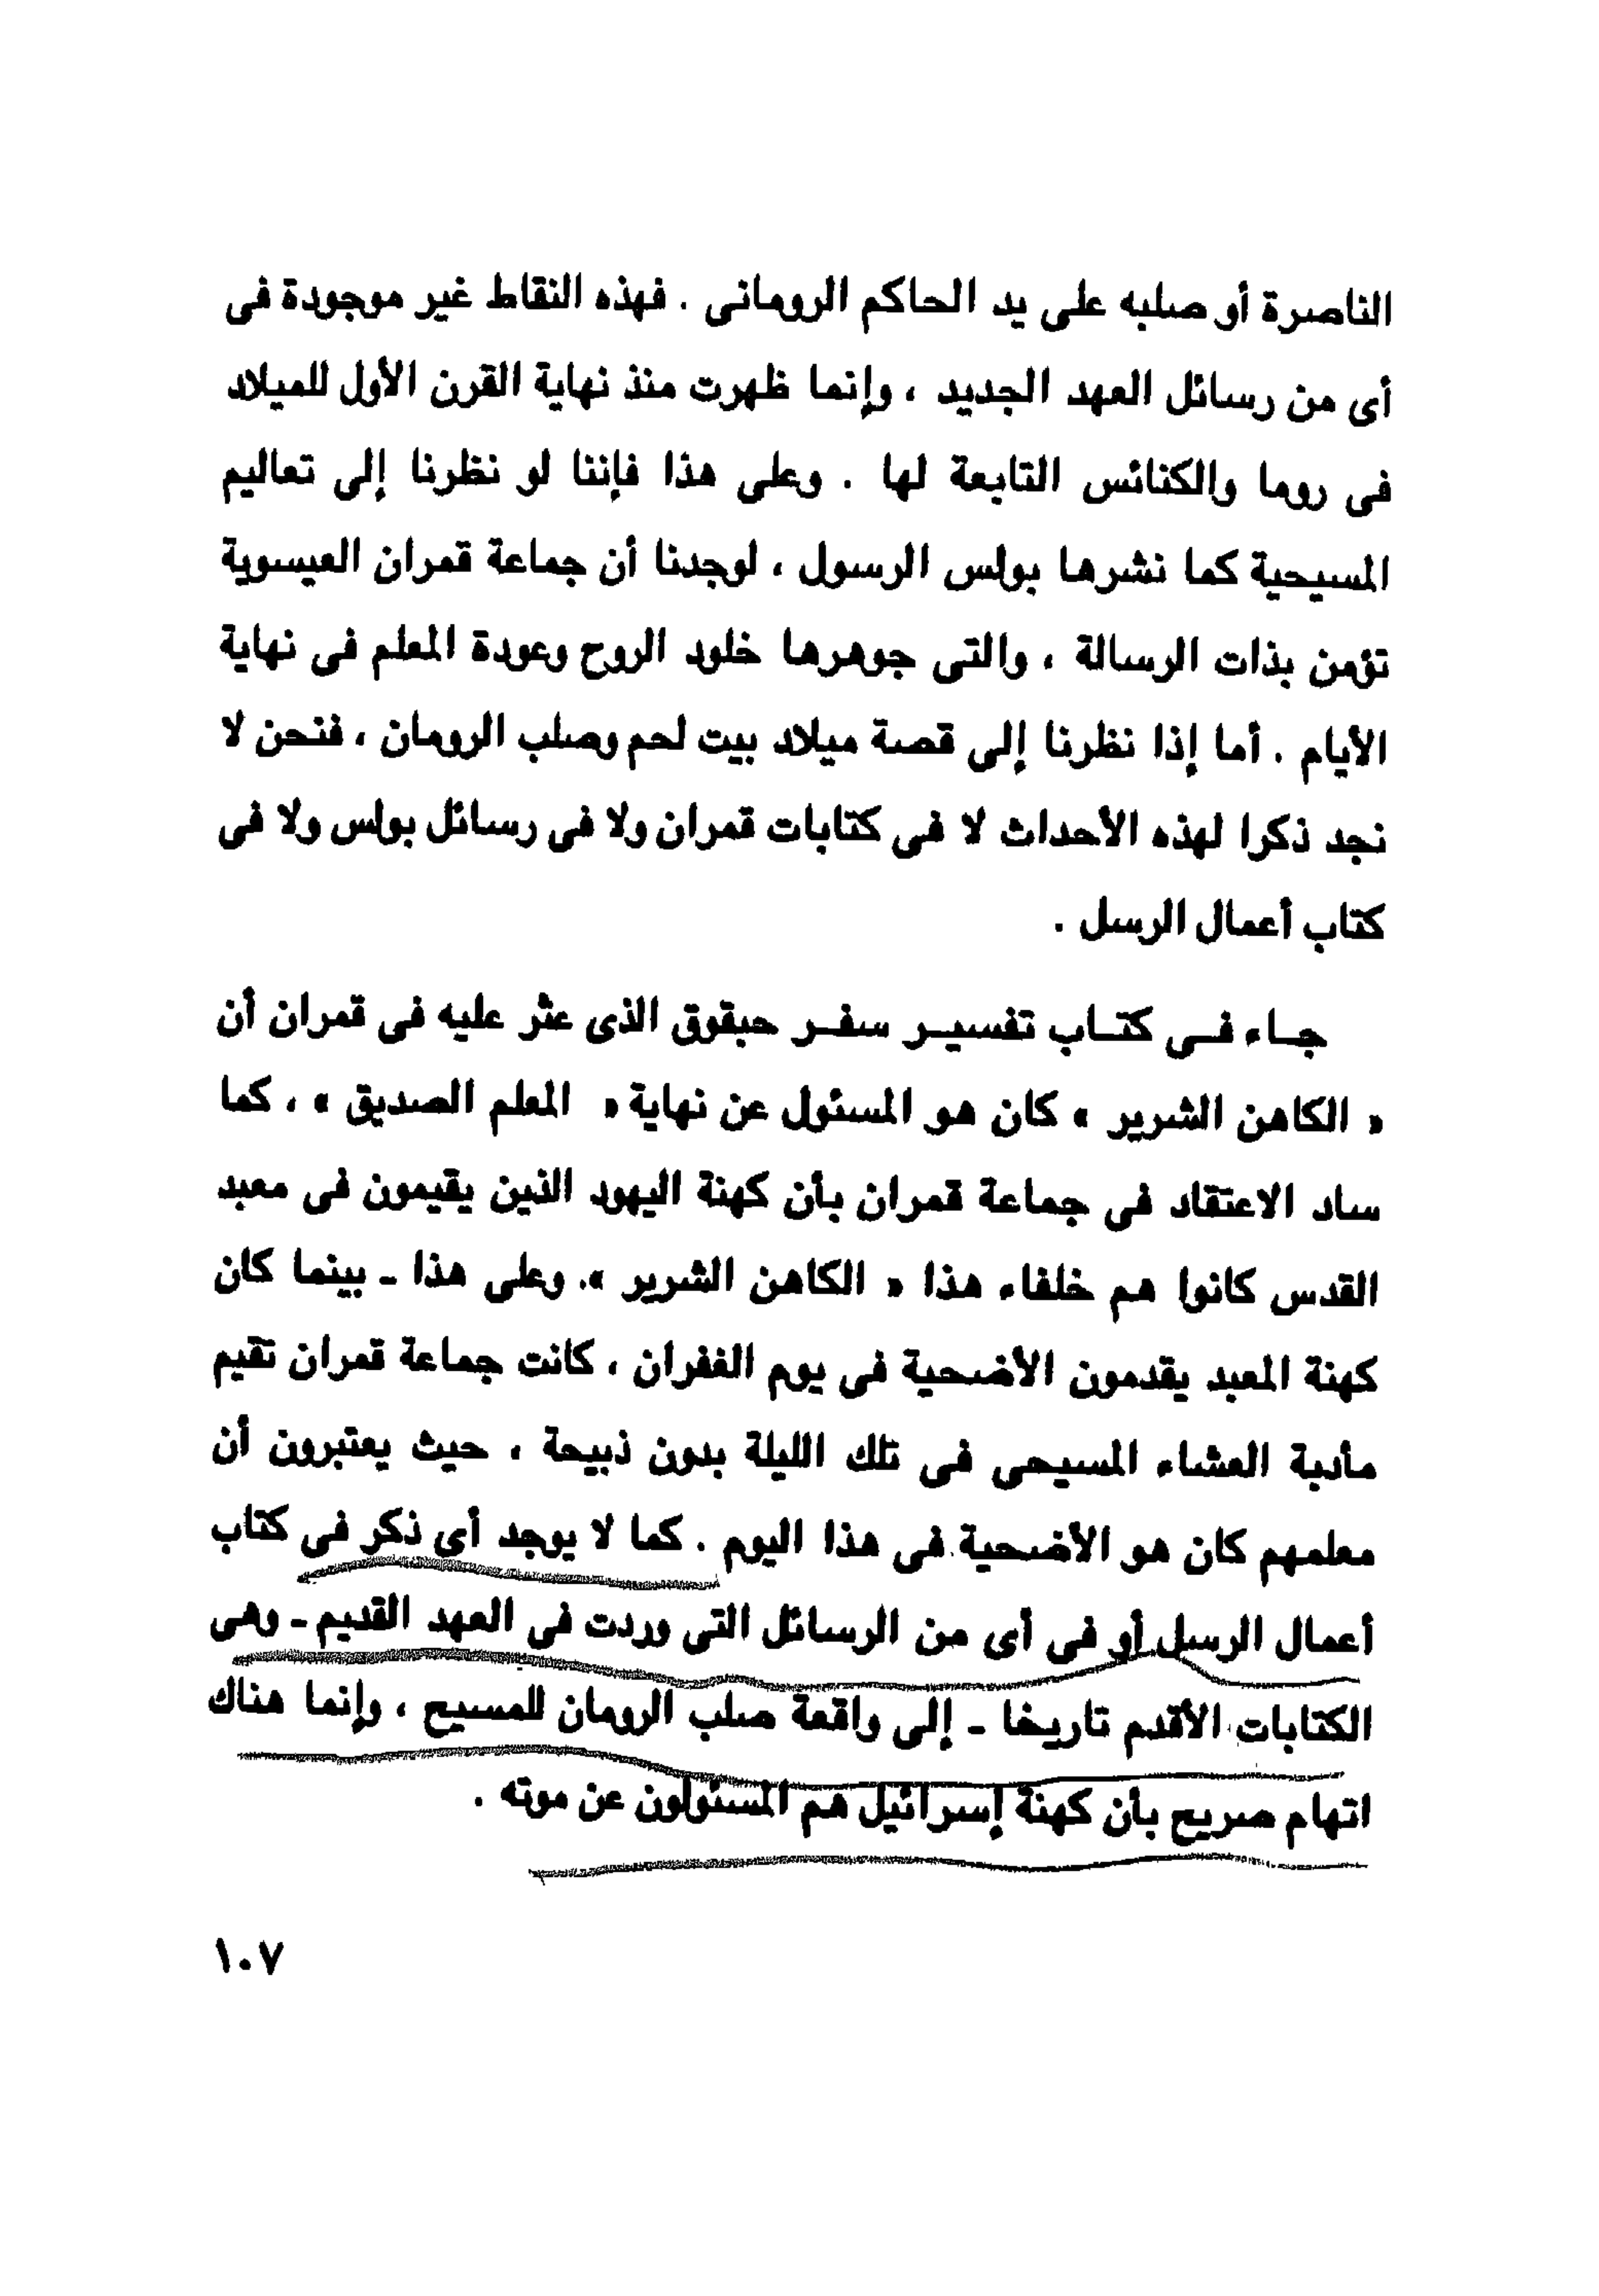 الناصرة أو صلبه على يد الحاكم الرومانى . فهذه النقاط غير موجودة فى
أى من رسائل العهد الجديد ، وإنما ظهرت منذ نهاية القرن الأول للميلاد
فى روما والكنائس التابعة لها . وعلى هذا فإننا لو نظرنا إلى تعاليم
المسيحية كما نشرها بولس الرسول ، لوجدنا أن جماعة قمران العيسوية
تؤمن بذات الرسالة ، والتى جوهرها خلود الروح وعودة المعلم فى نهاية
الأيام . أما إذا نظرنا إلى قصة ميلاد بيت لحم وصلب الرومان ، فنحن لا
نجد ذكرا لهذه الأحداث لا فى كتابات قمران ولا فى رسائل بولس ولا فى
كتاب أعمال الرسل .
جـاء فـى كتـاب تفسيـر سفـر حبقوق الذى عثر عليه فى قمران أن
« الكاهن الشرير » كان هو المسئول عن نهاية « المعلم الصديق » ، كما
ساد الاعتقاد فى جماعة قمران بأن كهنة اليهود الذين يقيمون فى معبد
القدس كانوا هم خلفاء هذا « الكاهن الشرير ». وعلى هذا ـ بينما كان
كهنة المعبد يقدمون الأضحية فى يوم الغفران ، كانت جماعة قمران تقيم
مأدبة العشاء المسيحى فى تلك الليلة بدون ذبيحة ، حيث يعتبرون أن
معلمهم كان هو الأضحية فى هذا اليوم . كما لا يوجد أى ذكر فى كتاب
أعمال الرسل أو فى أى من الرسائل التى وردت فى العهد القديم ـ وهى
الكتابات الأقدم تاريخا ـ إلى واقعة صلب الرومان للمسيح ، وإنما هناك
اتهام صريح بأن كهنة إسرائيل هم المسئولون عن موته .
١٠٧